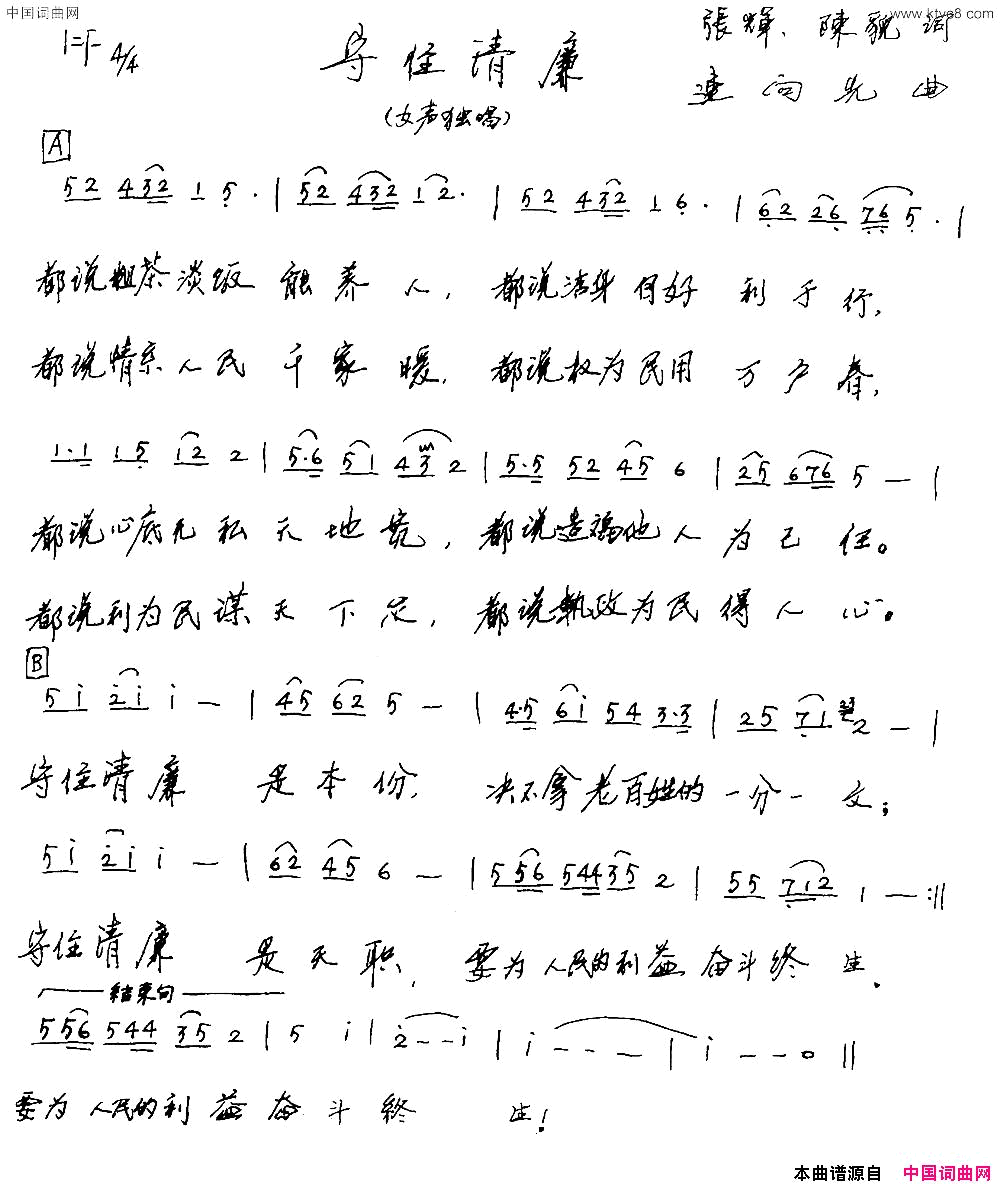 中国词曲网
www.ktvc8.com
1=F 4/4
守住清廉
張輝、陳貌词
連向先曲
(女声独唱)
A
52 432 1 5. | 52 432 12. | 52 432 1 6. | 62 26 76 5. |
都说粗茶淡饭能养人,都说洁身何好利于行,
都说情系人民千家暖,都说权为民用万户春,
1.1 15 12 2 | 5.6 51 43 2 | 5.5 52 45 6 | 25 676 5 — |
都说心底无私天地宽,都说造福他人为己任。
都说利为民谋天下定,都说執政为民得人心。
B
5i ii i — | 45 62 5 — | 4.5 6i 54 3.3 | 25 71 2 — |
守住清廉 是本份,决不拿老百姓的一分一文;
5i ii i — | 62 45 6 — | 556 544 35 2 | 55 712 1 — :||
守住清廉 是天职,要为人民的利益奋斗终生.
结束句
556 544 35 2 | 5 i | 2 - - i | i - - — | i - - 0 ||
要为人民的利益奋斗終 生!
本曲谱源自 中国词曲网